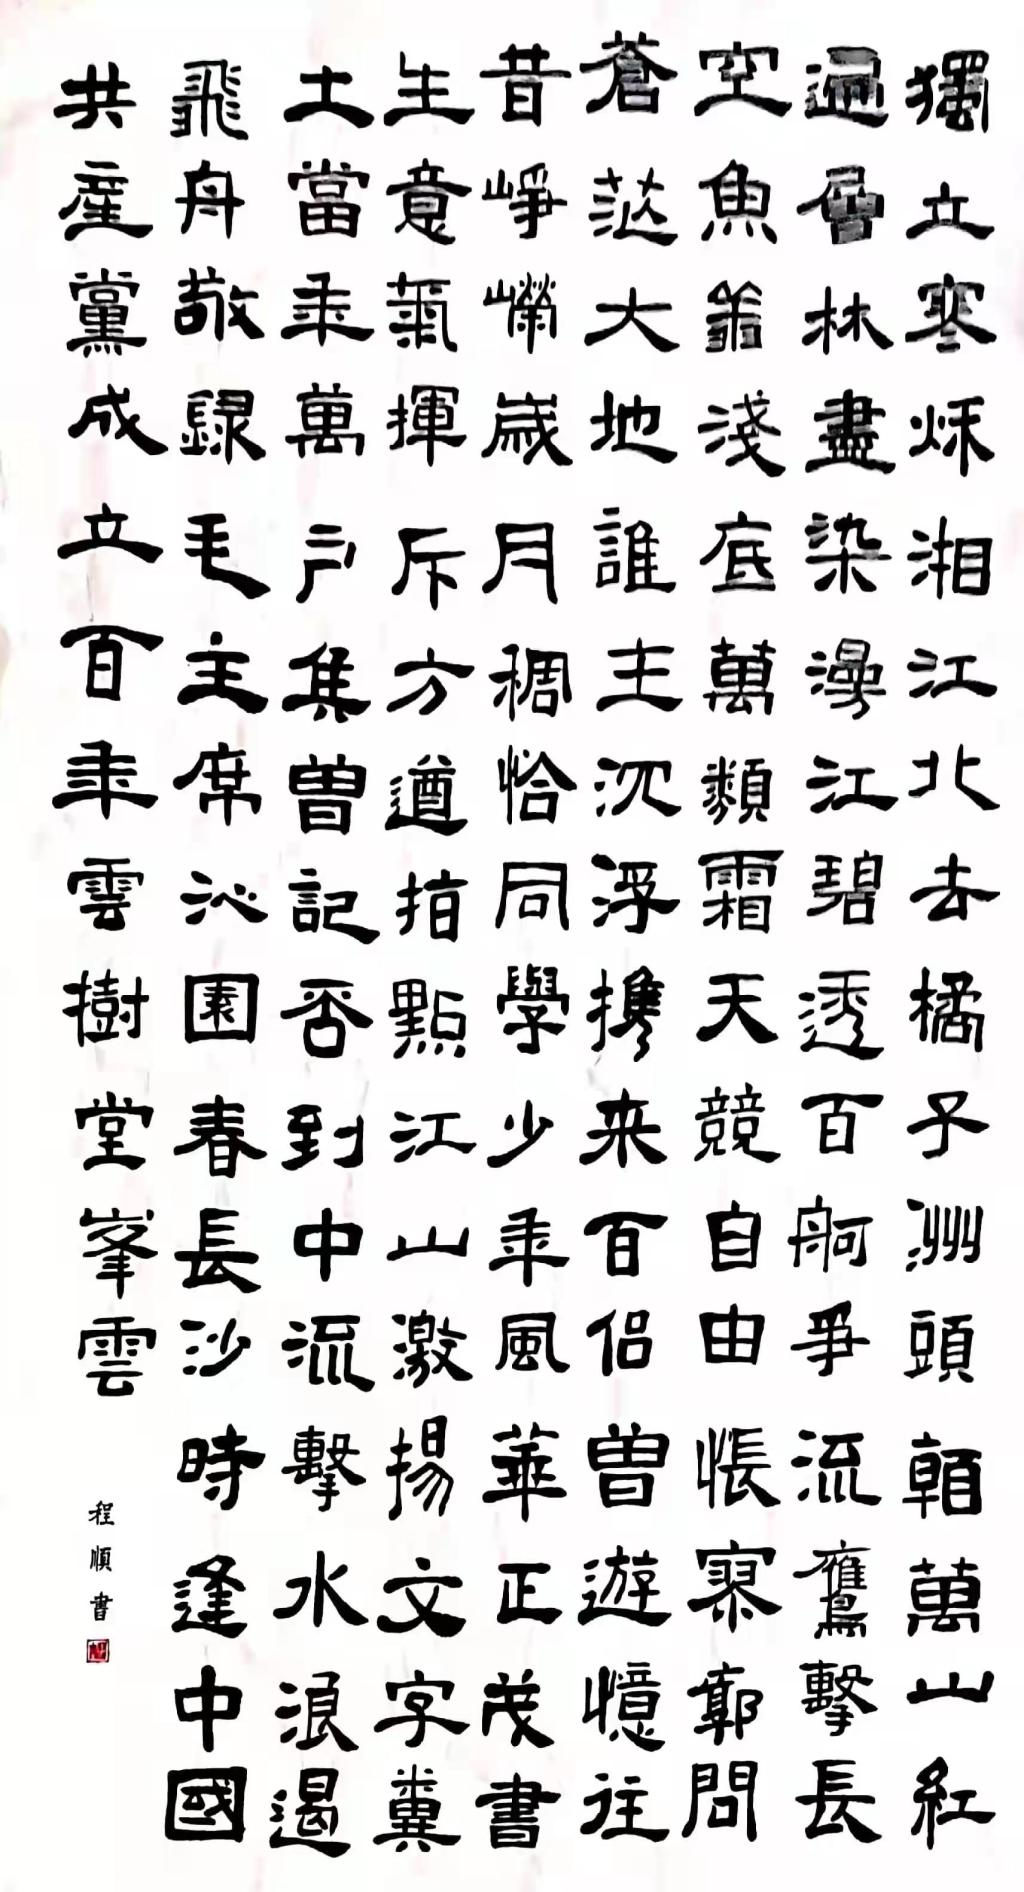 獨立寒秌湘江北去橘子洲頭看萬山紅
遍層林盡染漫江碧透百舸爭流鷹擊長
空魚翔淺底萬類霜天競自由悵寥廓問
蒼茫大地誰主沉浮携来百侶曾遊憶往
昔崢嶸歲月稠恰同學少年風華正茂書
生意氣揮斥方遒指點江山激揚文字糞
土當年萬户矦曾記否到中流擊水浪遏
飛舟敬録毛主席沁園春長沙時逢中國
共産黨成立百年雲樹堂峯雲
程順書